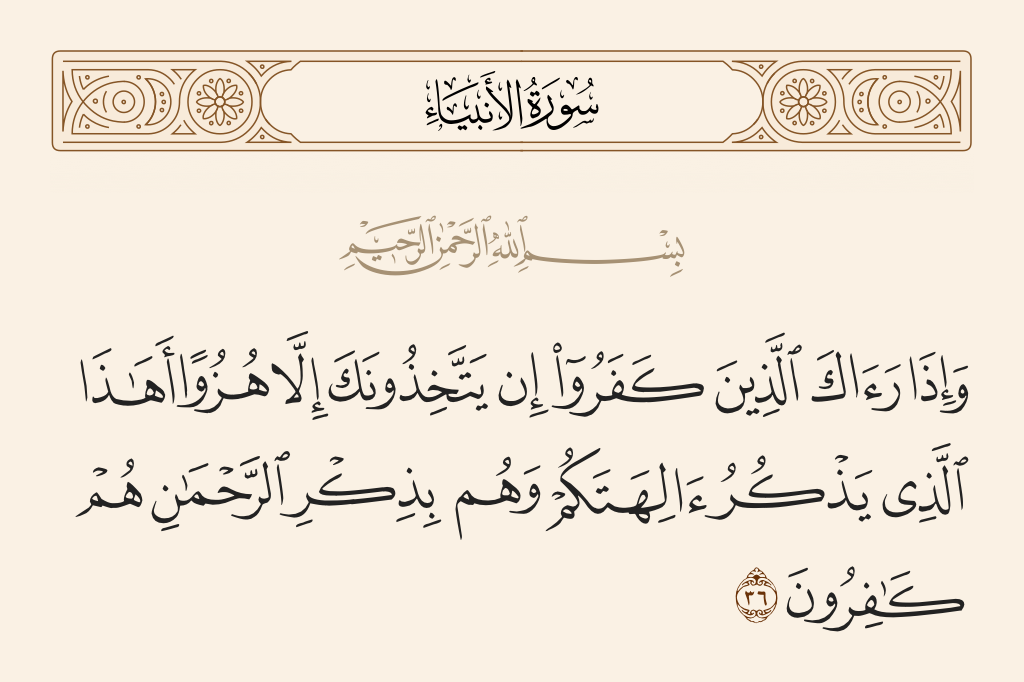 سُورَةُ الأَنبِيَاءِ
بِسْمِ ٱللَّهِ ٱلرَّحْمَٰنِ ٱلرَّحِيمِ
وَإِذَا رَءَاكَ ٱلَّذِينَ كَفَرُوٓا۟ إِن يَتَّخِذُونَكَ إِلَّا هُزُوًا أَهَـٰذَا
ٱلَّذِى يَذْكُرُ ءَالِهَتَكُمْ وَهُم بِذِكْرِ ٱلرَّحْمَـٰنِ هُمْ
كَـٰفِرُونَ ٣٦